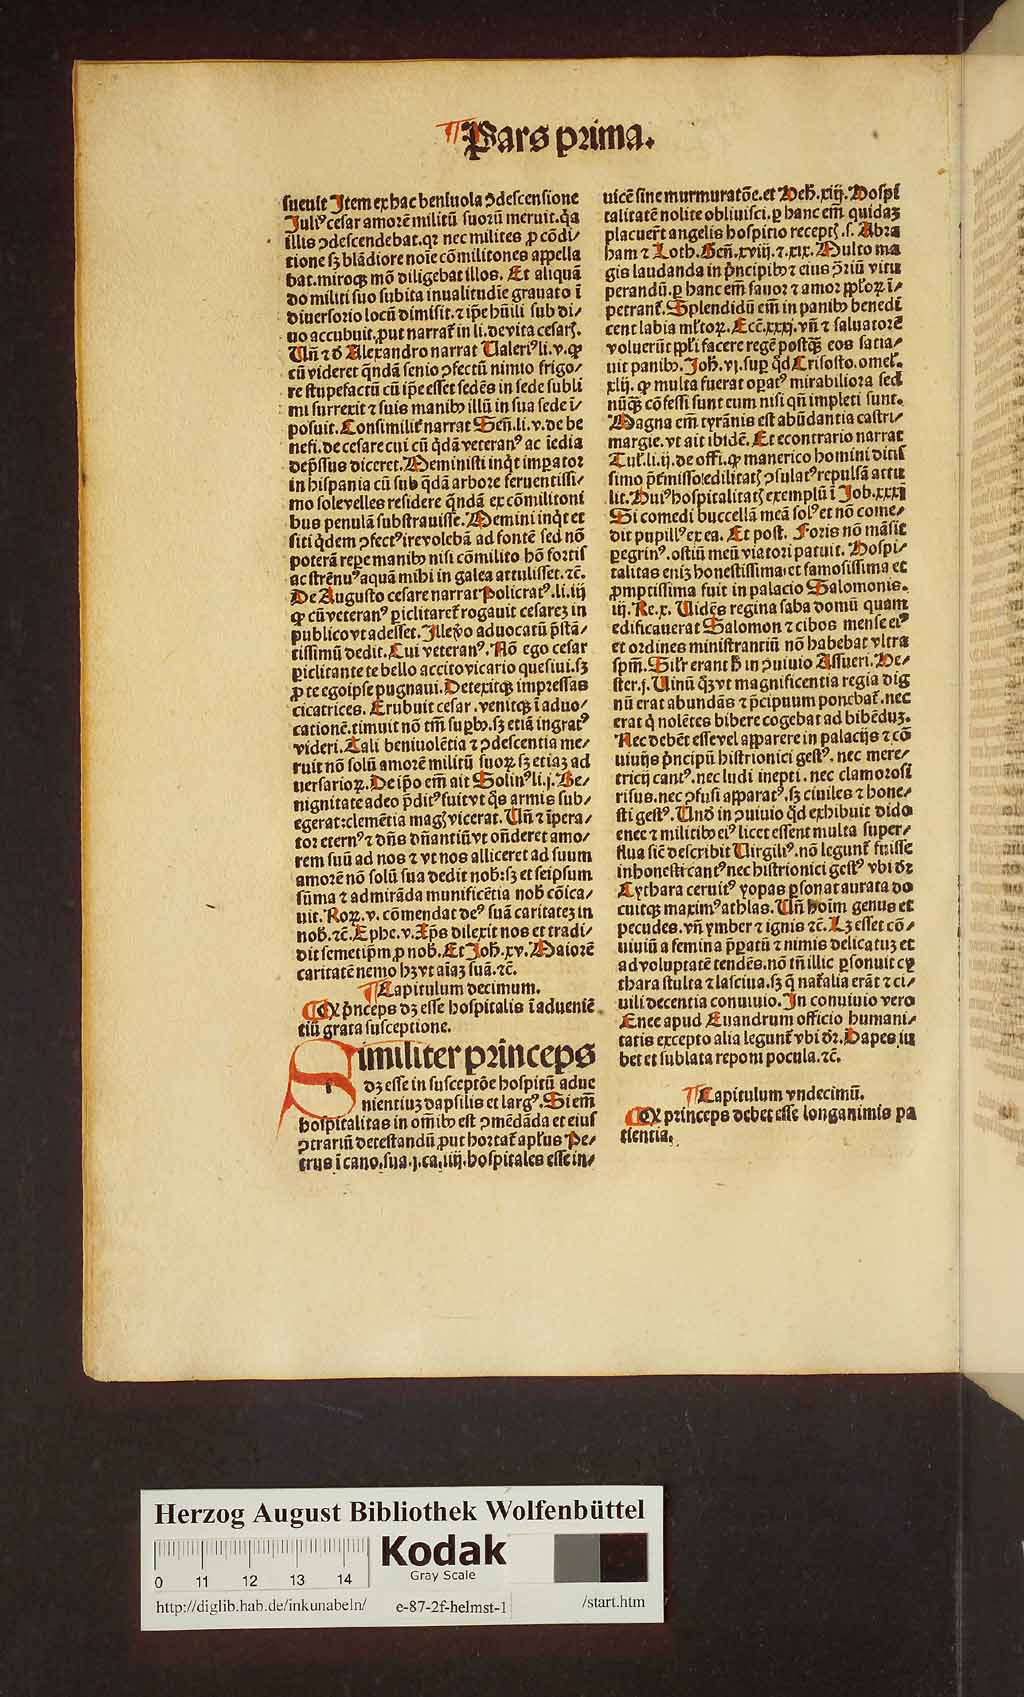 Pars prima.
sueuit Item ex hac beniuola ↄdescensione
Juliꝰ cesar amorē militū suorū meruit. q̄a
illis ↄdescendebat. qꝛ nec milites ꝓ cōdi/
tione sꝫ blādiore noīe cōmilitones appella
bat. miroqꝫ mō diligebat illos. Et aliquā
do militi suo subita inualitudīe grauato ī
diuersorio locū dimisit. ⁊ ip̄e hūili sub di/
uo accubuit. ꝓut narrat̄ in li. de vita cesarꝭ.
Un̄ ⁊ ð Alexandro narrat Ualeriꝰ li. v. ꝙ
cū videret q̄ndā senio ↄfectū nimio frigo/
re stupefactū cū ip̄e esset sedēs in sede subli
mi surrexit ⁊ suis manibꝫ illū in sua sede ī/
posuit. Consimilit̄ narrat Sen̄. li. v. de be
nefi. de cesare cui cū q̄dā veteranꝰ ac īedia
dep̄ssus diceret. Meministi inq̄t imꝑator
in hispania cū sub q̄dā arbore feruentissi/
mo sole velles residere q̄ndā ex cōmilitoni
bus penulā substrauisse. Memini inq̄t et
siti q̄dem ↄfectꝰ ire volebā ad fontē sed nō
poterā repe manibꝫ nisi cōmilito hō fortis
ac strēnuꝰ aquā mihi in galea attulisset. ⁊c̄.
De Augusto cesare narrat Policratꝰ. li. iij
ꝙ cū veteranꝰ ꝑiclitaret̄ rogauit cesarez in
publico vt adesset. Ille ꝟo aduocatū p̄stā/
tissimū dedit. Cui veteranꝰ. Nō ego cesar
ꝑiclitante te bello accito vicario quesiui. sꝫ
ꝓ te egoipse pugnaui. Detexitqꝫ impressas
cicatrices. Erubuit cesar. venitqꝫ ī aduo/
cationē. timuit nō tm̄ suꝑbꝫ. sꝫ etiā ingratꝰ
videri. Tali beniuolētia ⁊ ↄdescentia me/
ruit nō solū amorē militū suoꝝ sꝫ etiaꝫ ad
uersarioꝝ. De ip̄o em̄ ait Solinꝰ li. j. Be/
nignitate adeo p̄ditꝰ fuit vt q̄s armis sub/
egerat: clemētia magꝭ vicerat. Un̄ ⁊ īpera/
tor eternꝰ ⁊ dn̄s dn̄antiū vt on̄deret amo/
rem suū ad nos ⁊ vt nos alliceret ad suum
amorē nō solū sua dedit nob̄: sꝫ et seipsum
sūma ⁊ admirāda munificētia nob̄ cōica/
uit. Roꝝ. v. cōmendat deꝰ suā caritatez in
nob̄. ⁊c̄. Ephe. v. Xp̄s dilexit nos et tradi/
dit semetip̄m ꝓ nob̄. Et Joh̄. xv. Maiorē
caritatē nemo hꝫ vt aīaꝫ suā. ⁊c̄.
Capitulum decimum.
Qꝙ p̄nceps dꝫ esse hospitalis ī aduenīē
tiū grata susceptione.
Similiter princeps
dꝫ esse in susceptōe hospitū adue
nientiuꝫ dapsilis et largꝰ. Si em̄
hospitalitas in om̄ibꝫ est ↄmēdāda et eius
ↄtrariū detestandū ꝓut hortat̄ apl̄us Pe/
trus ī cano. sua. j. ca. iiij. hospitales esse in/
uicē sine murmuratōe. et Heb̄. xiij. Hospi
talitatē nolite obliuisci. ꝑ hanc em̄ quidaꝫ
placuer̄t angelis hospitio receptꝭ. s. Abra
ham ⁊ Loth. Gen̄. xviij. ⁊. xix. Multo ma
gis laudanda in p̄ncipibꝫ ⁊ eius ↄ̄riū vitu
perandū. ꝑ hanc em̄ fauor ⁊ amor ppl̄oꝝ ī/
petrant̄. Splendidū em̄ in panibꝫ benedi
cent labia ml̄toꝝ. Ecc̄. xxxj. vn̄ ⁊ saluatorē
voluerūt ppl̄i facere regē postqꝫ eos satia/
uit panibꝫ. Joh̄. vj. suꝑ q̄d Crisosto. omel̄.
xlij. ꝙ multa fuerat oꝑatꝰ mirabiliora sed
nūqꝫ cōfessi sunt eum nisi qn̄ impleti sunt.
Magna em̄ tyrānis est abūdantia castri/
margie. vt ait ibidē. Et econtrario narrat
Tul̄. li. ij. de offi. ꝙ manerico homini ditis
simo p̄t̄missio edilitatꝭ ↄsulatꝰ repulsā attu
lit. Huiꝰ hospitalitatꝭ exemplū ī Job. xxxi
Si comedi buccellā meā solꝰ et nō come/
dit pupillꝰ ex ea. Et post. Foris nō māsit
ꝑegrinꝰ. ostiū meū viatori patuit. Hospi/
talitas eniꝫ honestissima et famosissima et
ꝓmptissima fuit in palacio Salomonis.
iij. Re. x. Uidēs regina saba domū quam
edificauerat Salomon ⁊ cibos mense eiꝰ
et ordines ministrantiū nō habebat vltra
spm̄. Sil̄r erant h̄ in ↄuiuio Assueri. He/
ster. j. Uinū qꝫ vt magnificentia regia dig
nū erat abundās ⁊ p̄cipuum ponebat̄. nec
erat q̄ nolētes bibere cogebat ad bibēduꝫ.
Nec debēt esse vel apparere in palacijs ⁊ cō
uiuijs p̄ncipū histrionici gestꝰ. nec mere/
tricij cantꝰ. nec ludi inepti. nec clamorosi
risus. nec ↄfusi apparatꝰ. sꝫ ciuiles ⁊ hone/
sti gestꝰ. Und̄ in ↄuiuio q̄d exhibuit dido
enee ⁊ militibꝫ eiꝰ licet essent multa super/
flua sic̄ describit Uirgiliꝰ. nō legunt̄ fuisse
inhonesti cantꝰ nec histrionici gestꝰ vbi dꝛ
Cythara ceruitꝰ yopas ꝑsonat aurata do
cuitqꝫ maximꝰ athlas. Un̄ hoīm genus et
pecudes. vn̄ ymber ⁊ ignis ⁊c̄. Lꝫ esset cō/
uiuiū a femina p̄ꝑatū ⁊ nimis delicatuꝫ et
ad voluptatē tendēs. nō tn̄ illic ꝑsonuit cy
thara stulta ⁊ lasciua. sꝫ q̄ nat̄alia erāt ⁊ ci/
uili decentia conuiuio. In conuiuio vero
Enee apud Euandrum officio humani/
tatis excepto alia legunt̄ vbi dꝛ. Dapes iu
bet et sublata reponi pocula. ⁊c̄.
Capitulum vndecimū.
Qꝙ princeps debet esse longanimis pa
tientia.
Herzog August Bibliothek Wolfenbüttel
Kodak
Gray Scale
0 11 12 13 14
http://diglib.hab.de/inkunabeln/ e-87-2f-helmst-1 /start.htm